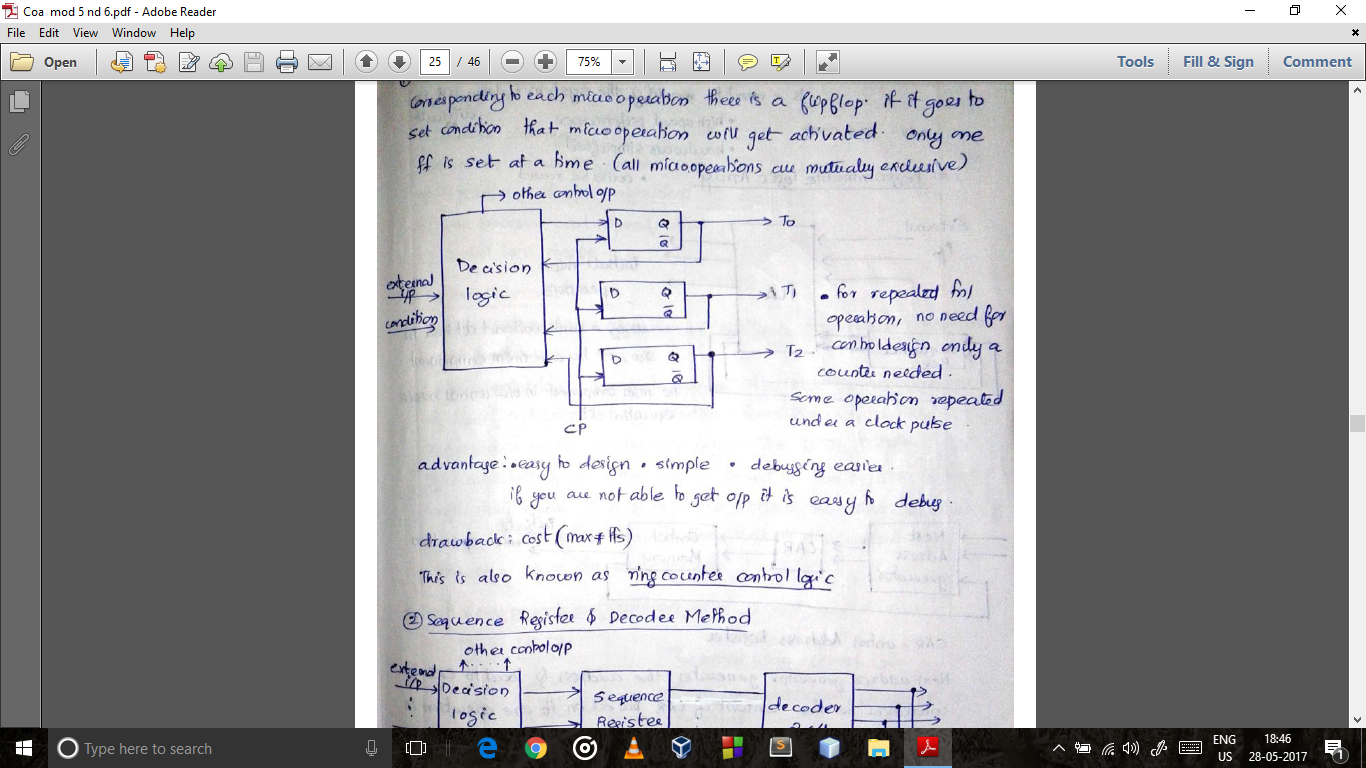 Coa mod 5 nd 6.pdf - Adobe Reader
File Edit View Window Help
Open 25 / 46 75% Tools Fill & Sign Comment
corresponding to each microoperation there is a flipflop. if it goes to
set condition that microoperation will get activated. only one
ff is set at a time. (all microoperations are mutually exclusive)
other control o/p
D Q
Q̅
T0
Decision
logic
external
i/p
condition
D Q
Q̅
T1
D Q
Q̅
T2
CP
• for repeated fn/
operation, no need for
control design only a
counter needed.
Same operation repeated
under a clock pulse.
advantage: • easy to design • simple • debugging easier.
if you are not able to get o/p it is easy to debug.
drawback: cost (max # ffs)
This is also known as ring counter control logic
② Sequence Register & Decoder Method
other control o/p
external
i/p
Decision
logic
Sequence
Register
decoder
Type here to search
ENG
US
18:46
28-05-2017
1